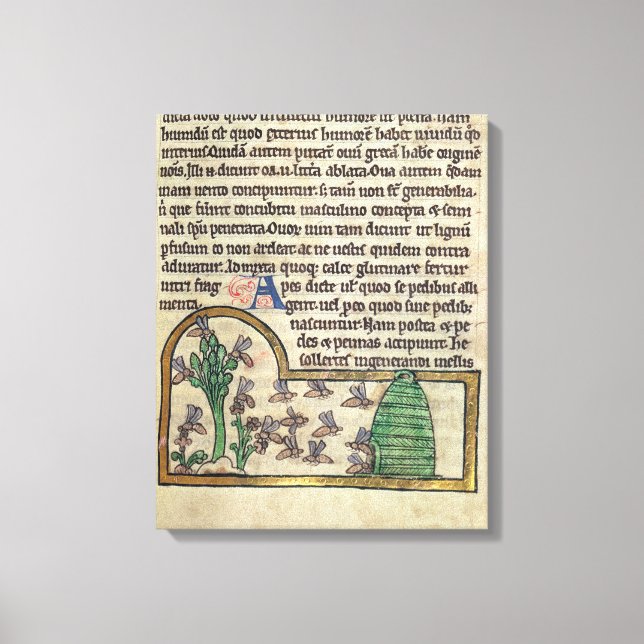 humidū est quod exterius humorē habet uiuidū qd
interius. Quidā autem putant ouū grecā habe originē
uocis. Illi
dicunt oa .u. littā ablata. Oua autem qdam
inani uento concipiuntur. s; tam̄ non st̄ generabilia
ñ que fuīnt concubitu masculino concepta & semi
nali spū penetrata. Ouor uim tam dicunt ut lignū
pfusum eo non ardeat ac ne uestis quidem contra
aduratur. Admixta quoq; calce glutinare fertur
uitri frag
menta.
Apes dicte ul' quod se pedibus alli
gent. uel p eo quod sine pedib;
nascuntur. Nam postea & pe
des & pennas accipiunt. He
sollertes ingenerandi mellis